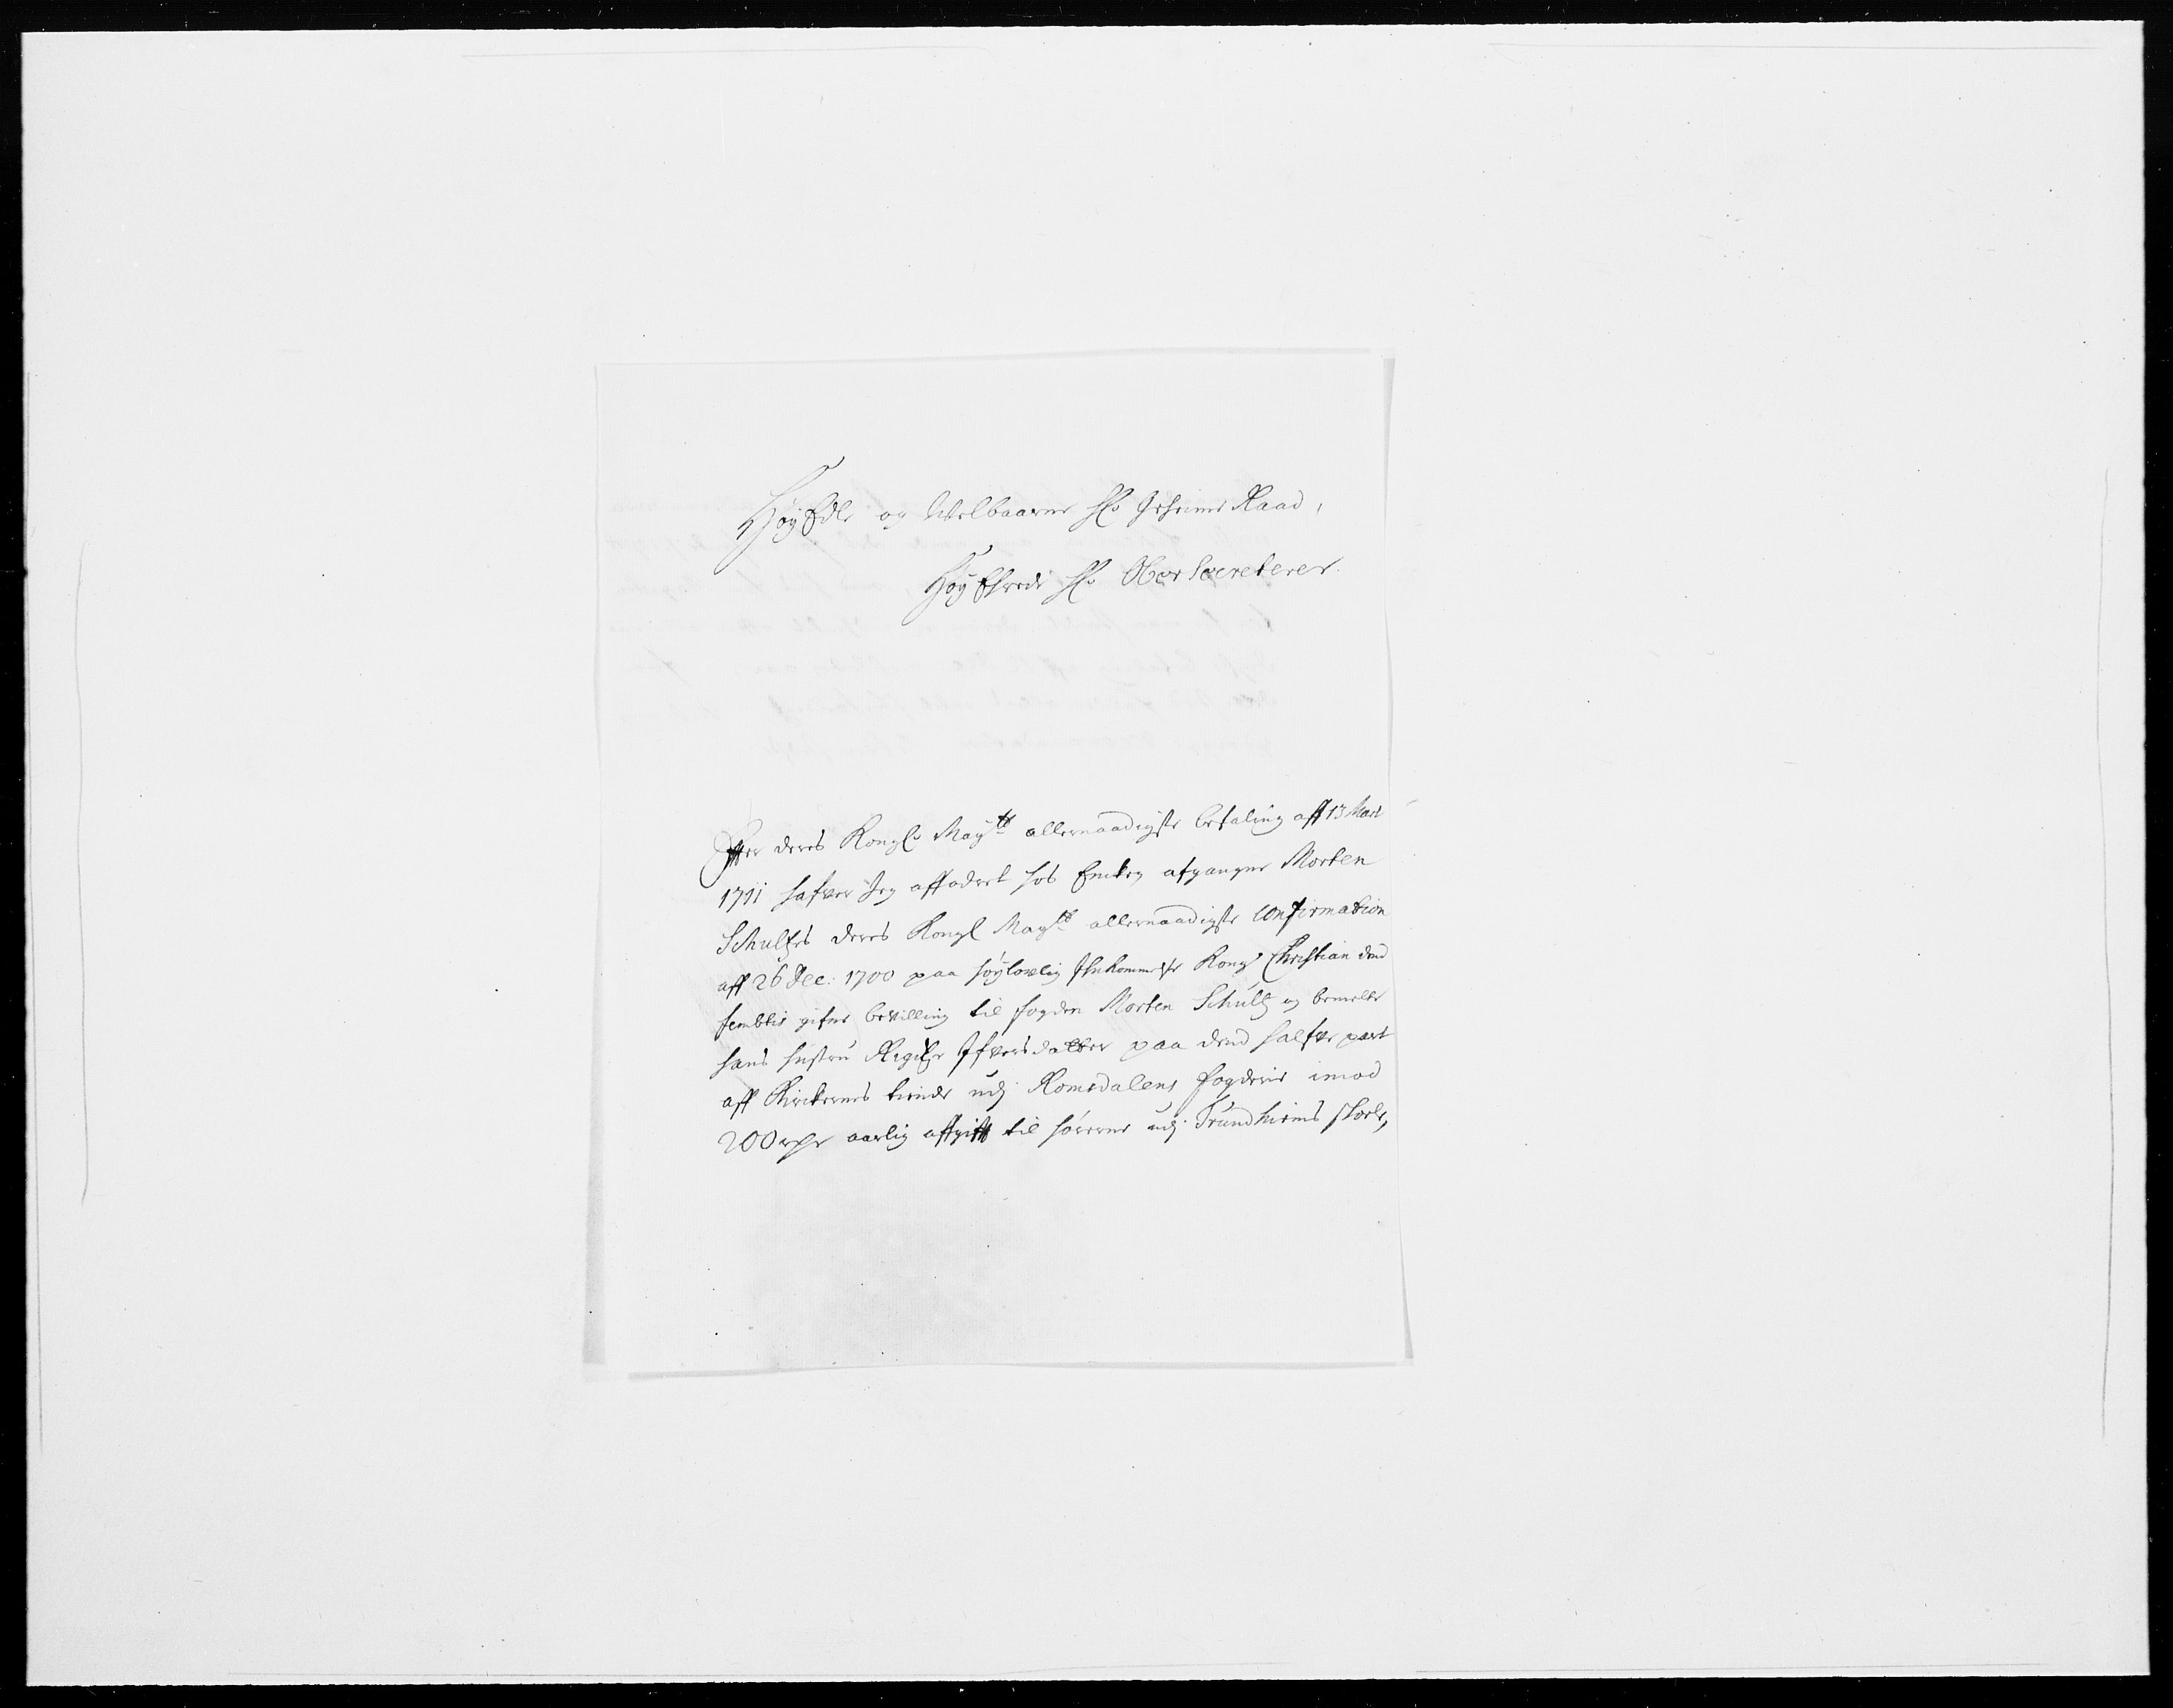 HøyEdle og Welbaarne Hr Geheime Raad,
HøyEhrede Hr Ober Secreterer.
Efter deres Kongl Mayts allernaadigste befaling aff 13 Mari
1711 hafver Jeg affodret hos Encken afgangne Morten
Schultzes deres Kongl Mayts allernaadigste Confirmation
aff 26 Dec: 1700 paa høylovlig Ihukommelse Kong Christian dend
femtis gifne bevilling til fogden Morten Schultz og bemelte
hans hustru Regitze Ifversdatter paa dend halfve part
aff Kirckernes tiende udj Romsdalens fogderie imod
200 rdr aarlig affgift til hørerne udj Trundhiems skoele,